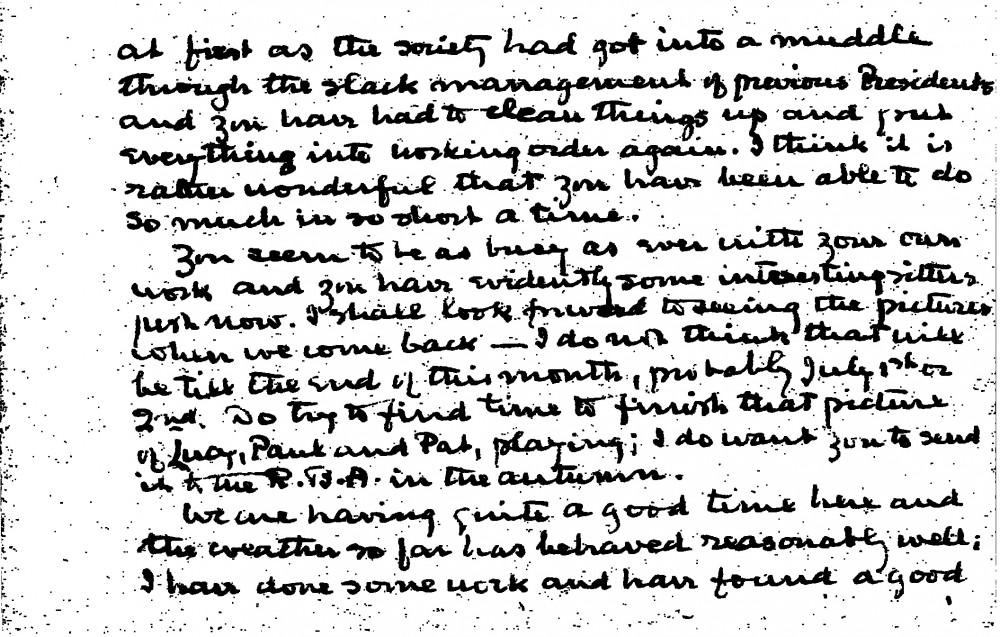 at first as the society had got into a muddle
through the slack management of previous Presidents
and you have had to clean things up and put
everything into working order again. I think it is
rather wonderful that you have been able to do
so much in so short a time.
You seem to be as busy as ever with your own
work and you have evidently some interesting sitters
just now. I shall look forward to seeing the pictures
when we come back — I do not think that will
be till the end of this month, probably July 1st or
2nd. Do try to find time to finish that picture
of Lucy, Paul and Pat, playing; I do want you to send
it to the R.B.A. in the autumn.
We are having quite a good time here and
the weather so far has behaved reasonably well;
I have done some work and have found a good